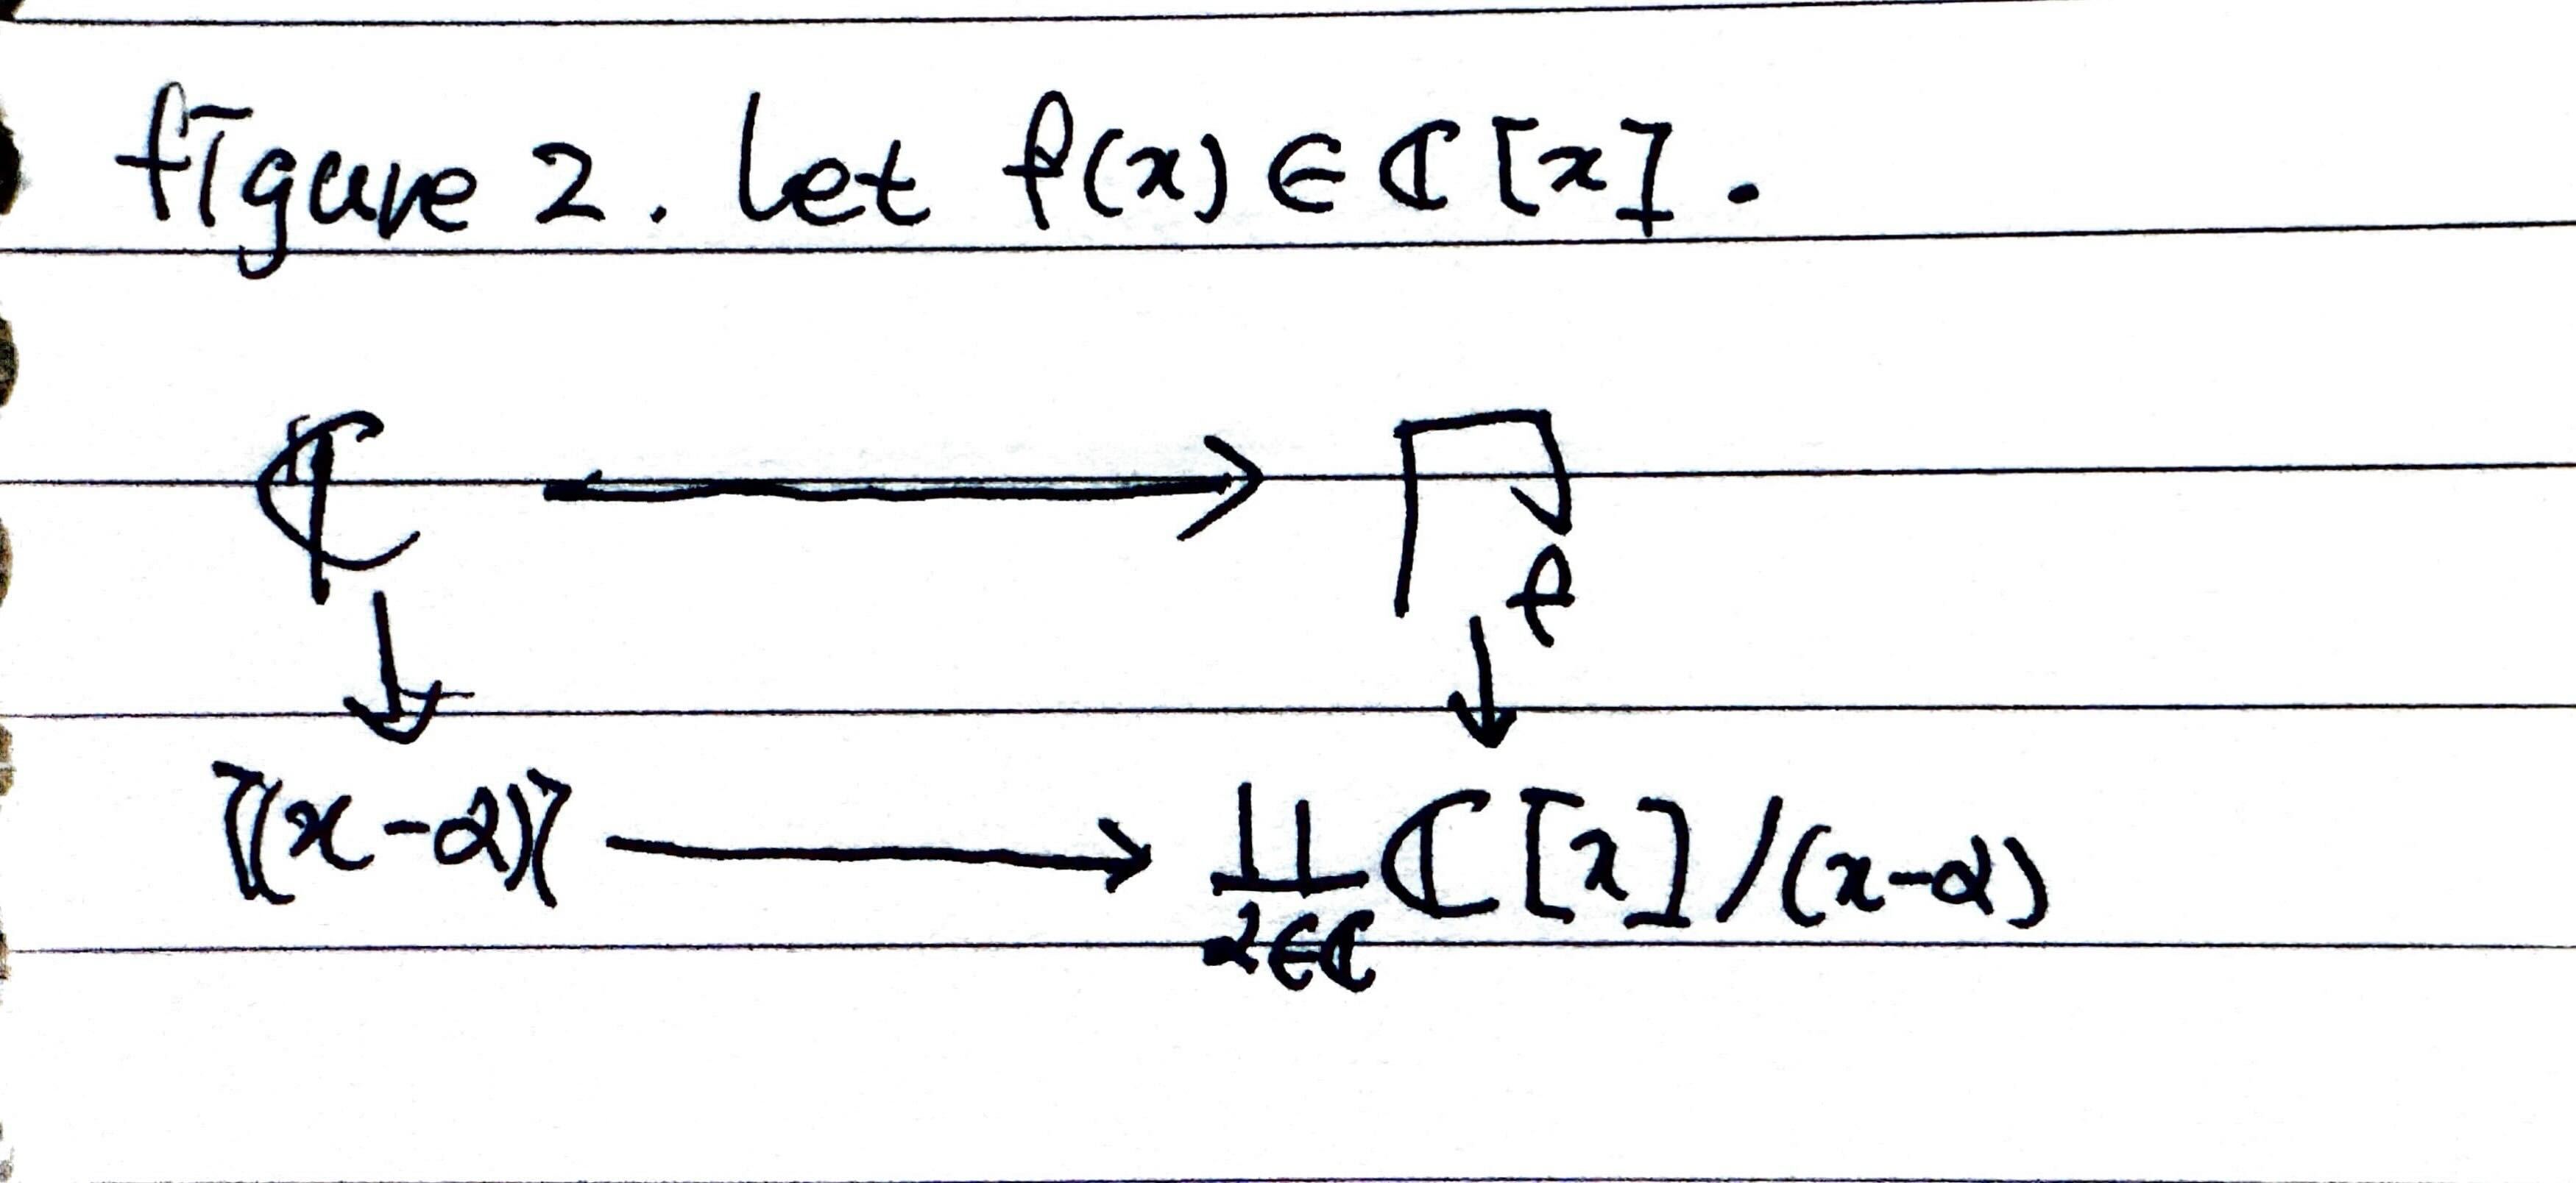 figure 2. Let f(x) ∈ ℂ[x].
ℂ ⟶ Γ_f
↓ ↓
{(x-α)} ⟶ ∐_{α∈ℂ} ℂ[x]/(x-α)